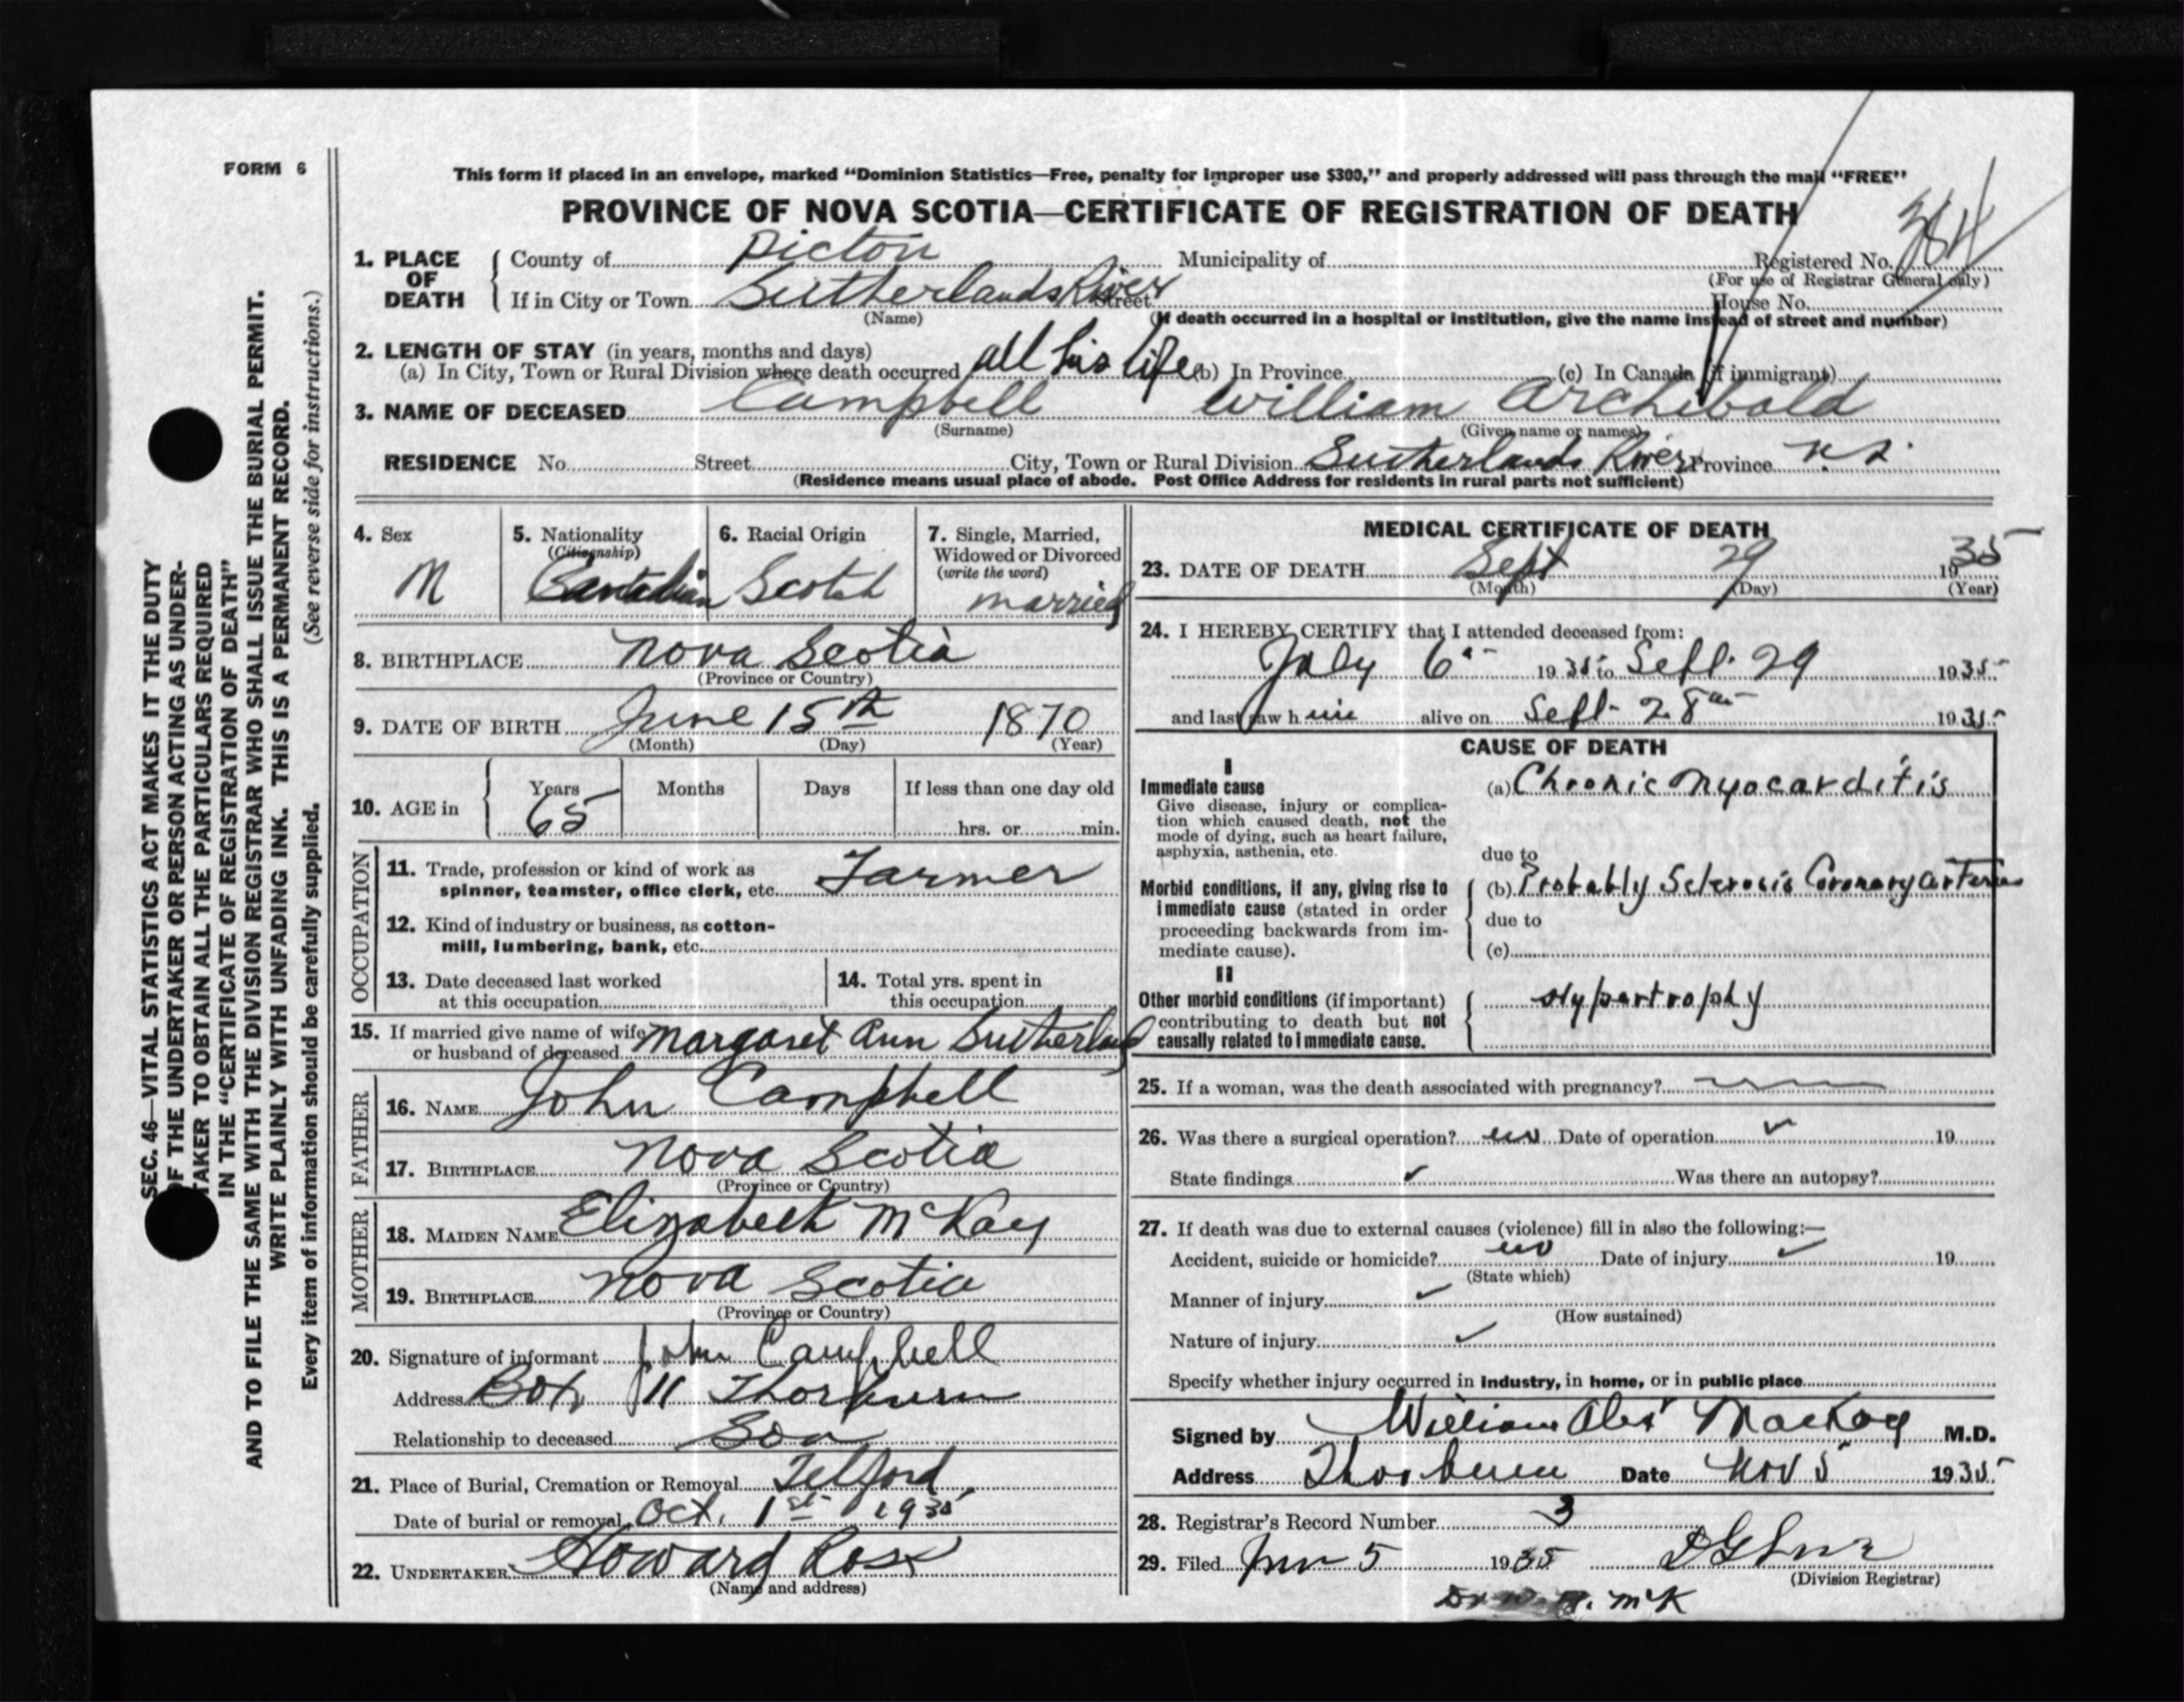 FORM 6
SEC. 46—VITAL STATISTICS ACT MAKES IT THE DUTY
OF THE UNDERTAKER OR PERSON ACTING AS UNDER-
TAKER TO OBTAIN ALL THE PARTICULARS REQUIRED
IN THE "CERTIFICATE OF REGISTRATION OF DEATH"
AND TO FILE THE SAME WITH THE DIVISION REGISTRAR WHO SHALL ISSUE THE BURIAL PERMIT.
WRITE PLAINLY WITH UNFADING INK. THIS IS A PERMANENT RECORD.
Every item of information should be carefully supplied. (See reverse side for instructions.)
This form if placed in an envelope, marked "Dominion Statistics—Free, penalty for improper use $300," and properly addressed will pass through the mail "FREE"
PROVINCE OF NOVA SCOTIA—CERTIFICATE OF REGISTRATION OF DEATH
1. PLACE OF DEATH
County of Pictou Municipality of Registered No. 384
(For use of Registrar General only)
If in City or Town Sutherlands River Street House No.
(Name) (If death occurred in a hospital or institution, give the name instead of street and number)
2. LENGTH OF STAY (in years, months and days)
(a) In City, Town or Rural Division where death occurred all his life (b) In Province (c) In Canada (if immigrant)
3. NAME OF DECEASED Campbell William Archibald
(Surname) (Given name or names)
RESIDENCE No. Street City, Town or Rural Division Sutherlands River Province N.S.
(Residence means usual place of abode. Post Office Address for residents in rural parts not sufficient)
4. Sex
M
5. Nationality
(Citizenship)
Canadian
6. Racial Origin
Scotch
7. Single, Married,
Widowed or Divorced
(write the word)
married
8. BIRTHPLACE Nova Scotia
(Province or Country)
9. DATE OF BIRTH June 15th 1870
(Month) (Day) (Year)
10. AGE in
Years Months Days If less than one day old
65 hrs. or min.
OCCUPATION
11. Trade, profession or kind of work as
spinner, teamster, office clerk, etc. Farmer
12. Kind of industry or business, as cotton-
mill, lumbering, bank, etc.
13. Date deceased last worked
at this occupation
14. Total yrs. spent in
this occupation
15. If married give name of wife
or husband of deceased Margaret Ann Sutherland
FATHER
16. NAME John Campbell
17. BIRTHPLACE Nova Scotia
(Province or Country)
MOTHER
18. MAIDEN NAME Elizabeth McKay
19. BIRTHPLACE Nova Scotia
(Province or Country)
20. Signature of informant John Campbell
Address Box 11 Thorburn
Relationship to deceased Son
21. Place of Burial, Cremation or Removal Telford
Date of burial or removal Oct. 1st 1935
22. UNDERTAKER Howard Ross
(Name and address)
MEDICAL CERTIFICATE OF DEATH
23. DATE OF DEATH Sept 29 1935
(Month) (Day) (Year)
24. I HEREBY CERTIFY that I attended deceased from:
July 6 1935 to Sept. 29 1935
and last saw him alive on Sept. 28 1935
CAUSE OF DEATH
I
Immediate cause
Give disease, injury or complica-
tion which caused death, not the
mode of dying, such as heart failure,
asphyxia, asthenia, etc.
(a) Chronic Myocarditis
due to
Morbid conditions, if any, giving rise to
immediate cause (stated in order
proceeding backwards from im-
mediate cause).
(b) Probably Sclerosis Coronary arteries
due to
(c)
II
Other morbid conditions (if important)
contributing to death but not
causally related to immediate cause.
Hypertrophy
25. If a woman, was the death associated with pregnancy?
26. Was there a surgical operation? no Date of operation 19
State findings Was there an autopsy?
27. If death was due to external causes (violence) fill in also the following:—
Accident, suicide or homicide? no Date of injury 19
(State which)
Manner of injury
(How sustained)
Nature of injury
Specify whether injury occurred in industry, in home, or in public place
Signed by William Alex MacKay M.D.
Address Thorburn Date Nov 5 1935
28. Registrar's Record Number 3
29. Filed Nov 5 1935
(Division Registrar)
McK